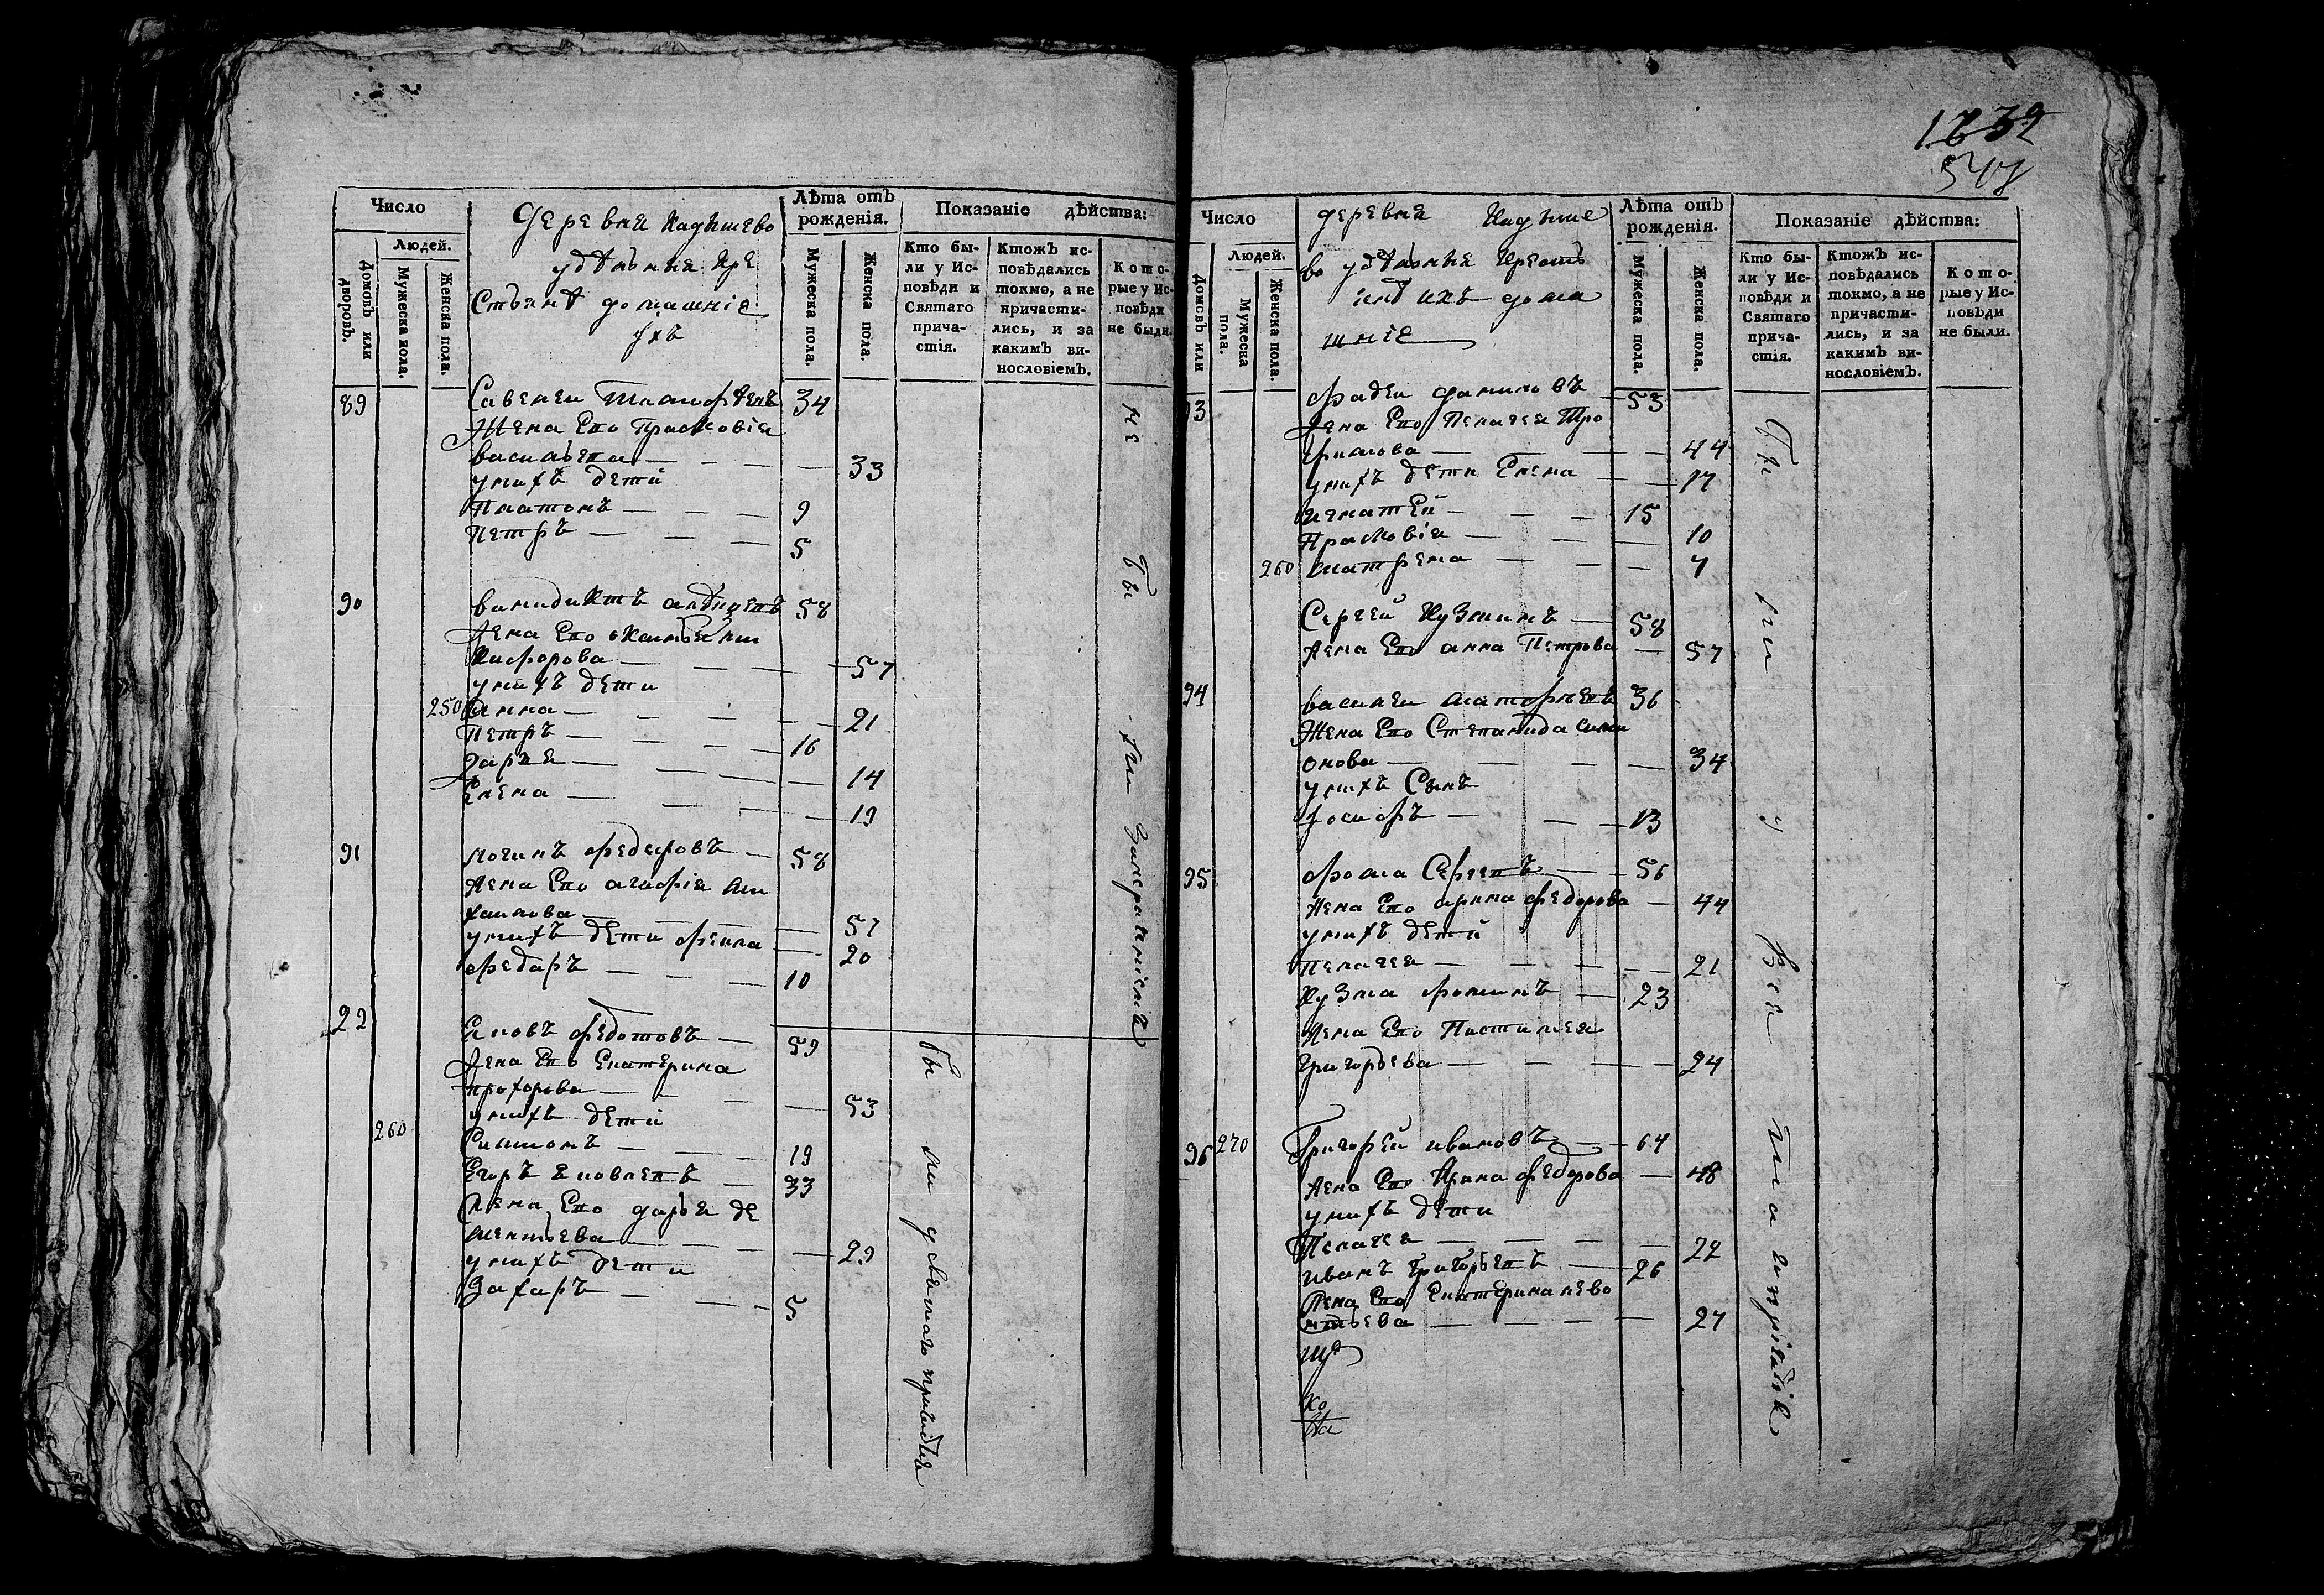 1232
Число
Людей.
Домовъ или дворовъ.
Мужеска пола.
Женска пола.
Деревня Кадышево
удѣльныя кре
стьянѣ домашніе
ихъ
Лѣта отъ рожденія.
Мужеска пола.
Женска пола.
Показаніе дѣйства:
Кто бы-
ли у Ис-
повѣди и
Святаго
прича-
стія.
Ктожъ ис-
повѣдались
токмо, а не
причасти-
лись, и за
какимъ ви-
нословіемъ.
Кото-
рые у Ис-
повѣди
не были.
89 Савелеи 34
Жена Его Прасковія
васильева — — — 33
у нихъ дети
Платонъ — — — 9
Петръ — — — 5
90 58
Жена Его
Никфорова — — — 57
у нихъ дети
250 Анна — — — 21
Петръ — — — 16
Дарья — — — 14
Елена — — — 19
91 логинъ федоровъ — 58
Жена Его агафія ми
хаилова — — — 57
у нихъ дети фекла — 20
федаръ — — — 10
92 Еповъ федотовъ — 59
Жена Его Екатерина
прохорова — — — 53
у нихъ дети
260 Симионъ — — — 19
Егоръ — 33
Жена Его дарья де
ментьева — — — 29
у нихъ дети
Захаръ — — — 5
не бы ли за нерадѣніемъ
бы ли у святаго причастія
Число
Людей.
Домовъ или
Мужеска пола.
Женска пола.
деревня Кадыше
во удѣльныя кресть
янѣ ихъ дома
шніе
Лѣта отъ рожденія.
Мужеска пола.
Женска пола.
Показаніе дѣйства:
Кто бы-
ли у Ис-
повѣди и
Святаго
прича-
стія.
Ктожъ ис-
повѣдались
токмо, а не
причасти-
лись, и за
какимъ ви-
нословіемъ.
Кото-
рые у Ис-
повѣди
не были.
93 фадеи даниловъ — 53
Жена Его Пелагея Тро
фимова — — — 44
у нихъ дети Елена — 17
игнатей — — — 15
Прасковія — — — 10
260 матрена — — — 7
Сергей Кузминъ — 58
Жена Его анна Петрова — 57
94 василеи 36
Жена Его Степанида сими
онова — — — 34
у нихъ Сынъ
Иосифъ — — — 13
95 фома Сергеевъ — 56
Жена Его арина федорова — 44
у нихъ дети
Пелагея — — — 21
Кузма фоминъ — 23
Жена Его Пистимея
григорьева — — — 24
96 270 Григорей ивановъ — 64
Жена Его Ирина федорова — 48
у нихъ дети
Пелагея — — — 22
иванъ григорьевъ — 26
Жена Его Екатерина лево
нтьева — — — 27
бы ли у